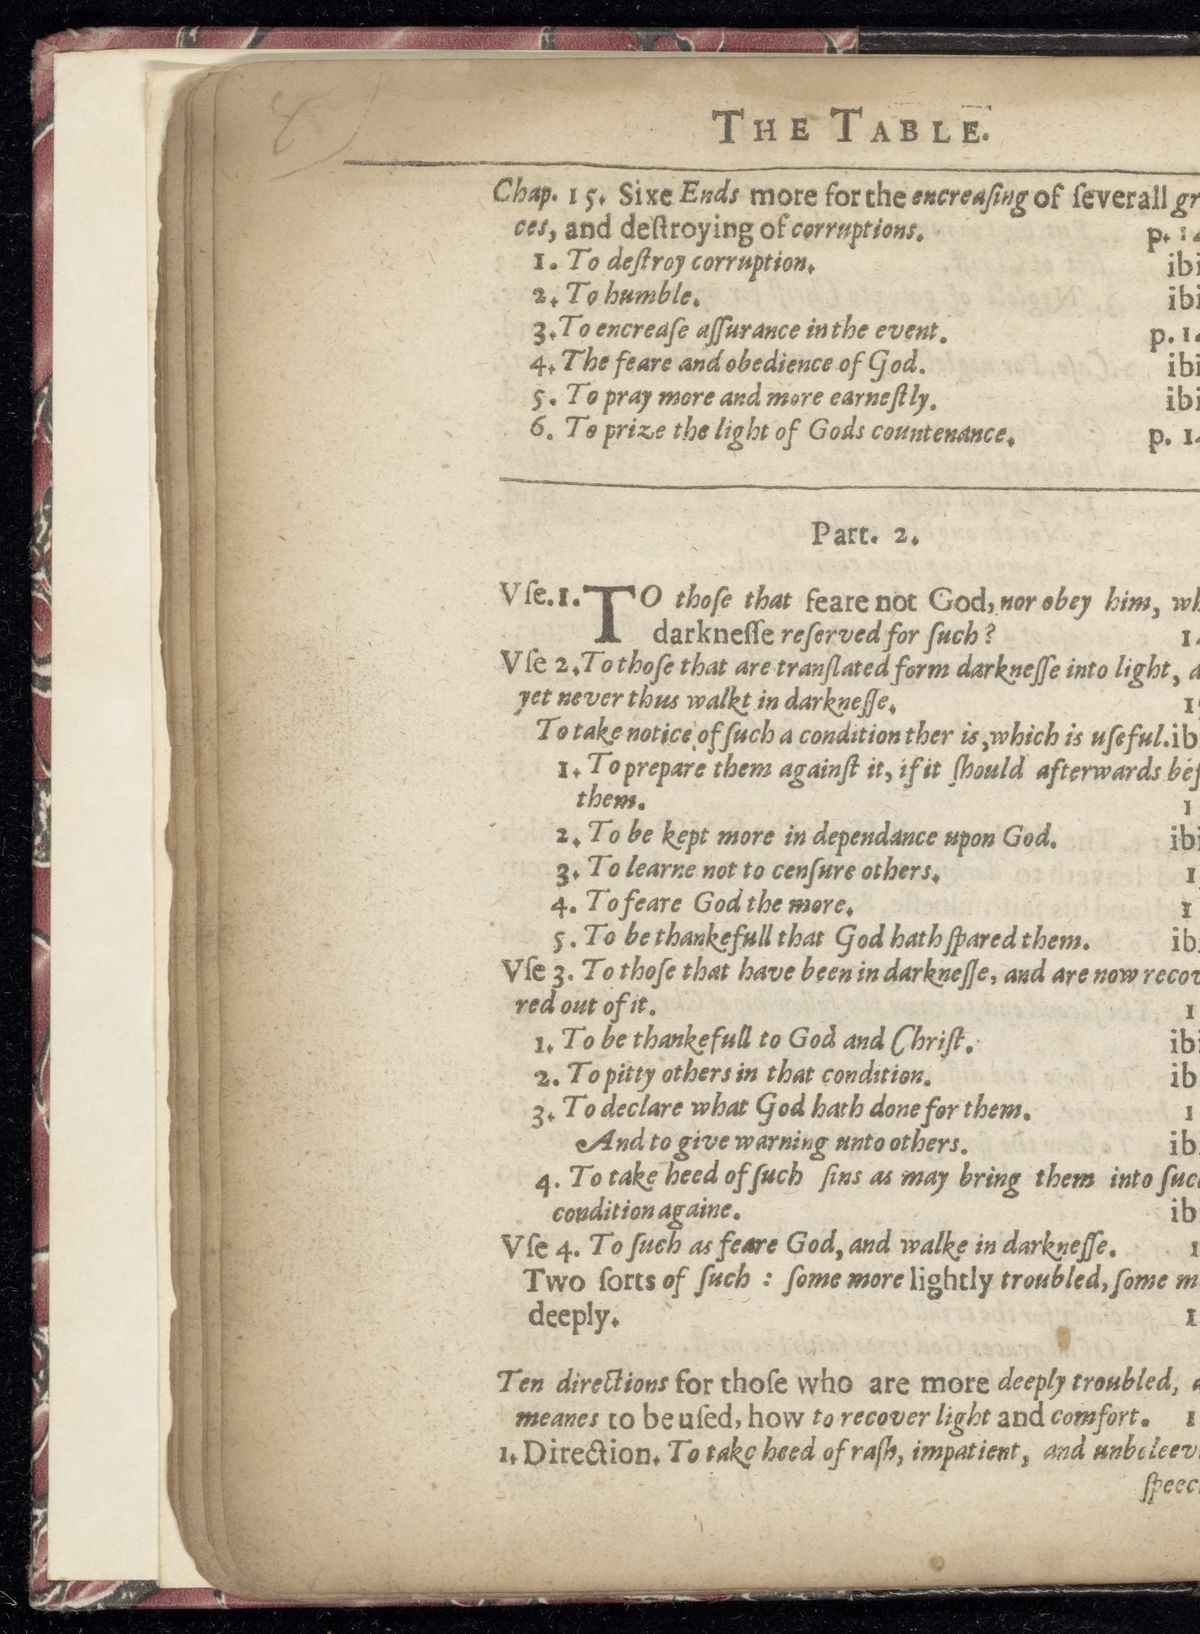 THE TABLE.
Chap. 15. Sixe Ends more for the encreaſing of ſeverall gr
ces, and deſtroying of corruptions. p. 14
1. To deſtroy corruption. ibi
2. To humble. ibi
3. To encreaſe aſſurance in the event. p. 14
4. The feare and obedience of God. ibi
5. To pray more and more earneſtly. ibi
6. To prize the light of Gods countenance. p. 14
Part. 2.
Vſe. 1. TO thoſe that feare not God, nor obey him, wh
darkneſſe reſerved for ſuch? 14
Vſe 2. To thoſe that are tranſlated form darkneſſe into light, a
yet never thus walkt in darkneſſe. 15
To take notice of ſuch a condition ther is, which is uſeful. ib
1. To prepare them againſt it, if it ſhould afterwards bef
them. 1
2. To be kept more in dependance upon God. ibi
3. To learne not to cenſure others. 1
4. To feare God the more. 1
5. To be thankefull that God hath ſpared them. ib
Vſe 3. To thoſe that have been in darkneſſe, and are now recov
red out of it. 1
1. To be thankefull to God and Chriſt. ibi
2. To pitty others in that condition. ib
3. To declare what God hath done for them. 1
And to give warning unto others. ib
4. To take heed of ſuch ſins as may bring them into ſuc
condition againe. ib
Vſe 4. To ſuch as feare God, and walke in darkneſſe. 1
Two ſorts of ſuch : ſome more lightly troubled, ſome m
deeply. 1
Ten directions for thoſe who are more deeply troubled, a
meanes to be uſed, how to recover light and comfort. 1
1. Direction. To take heed of raſh, impatient, and unbeleev
ſpeec